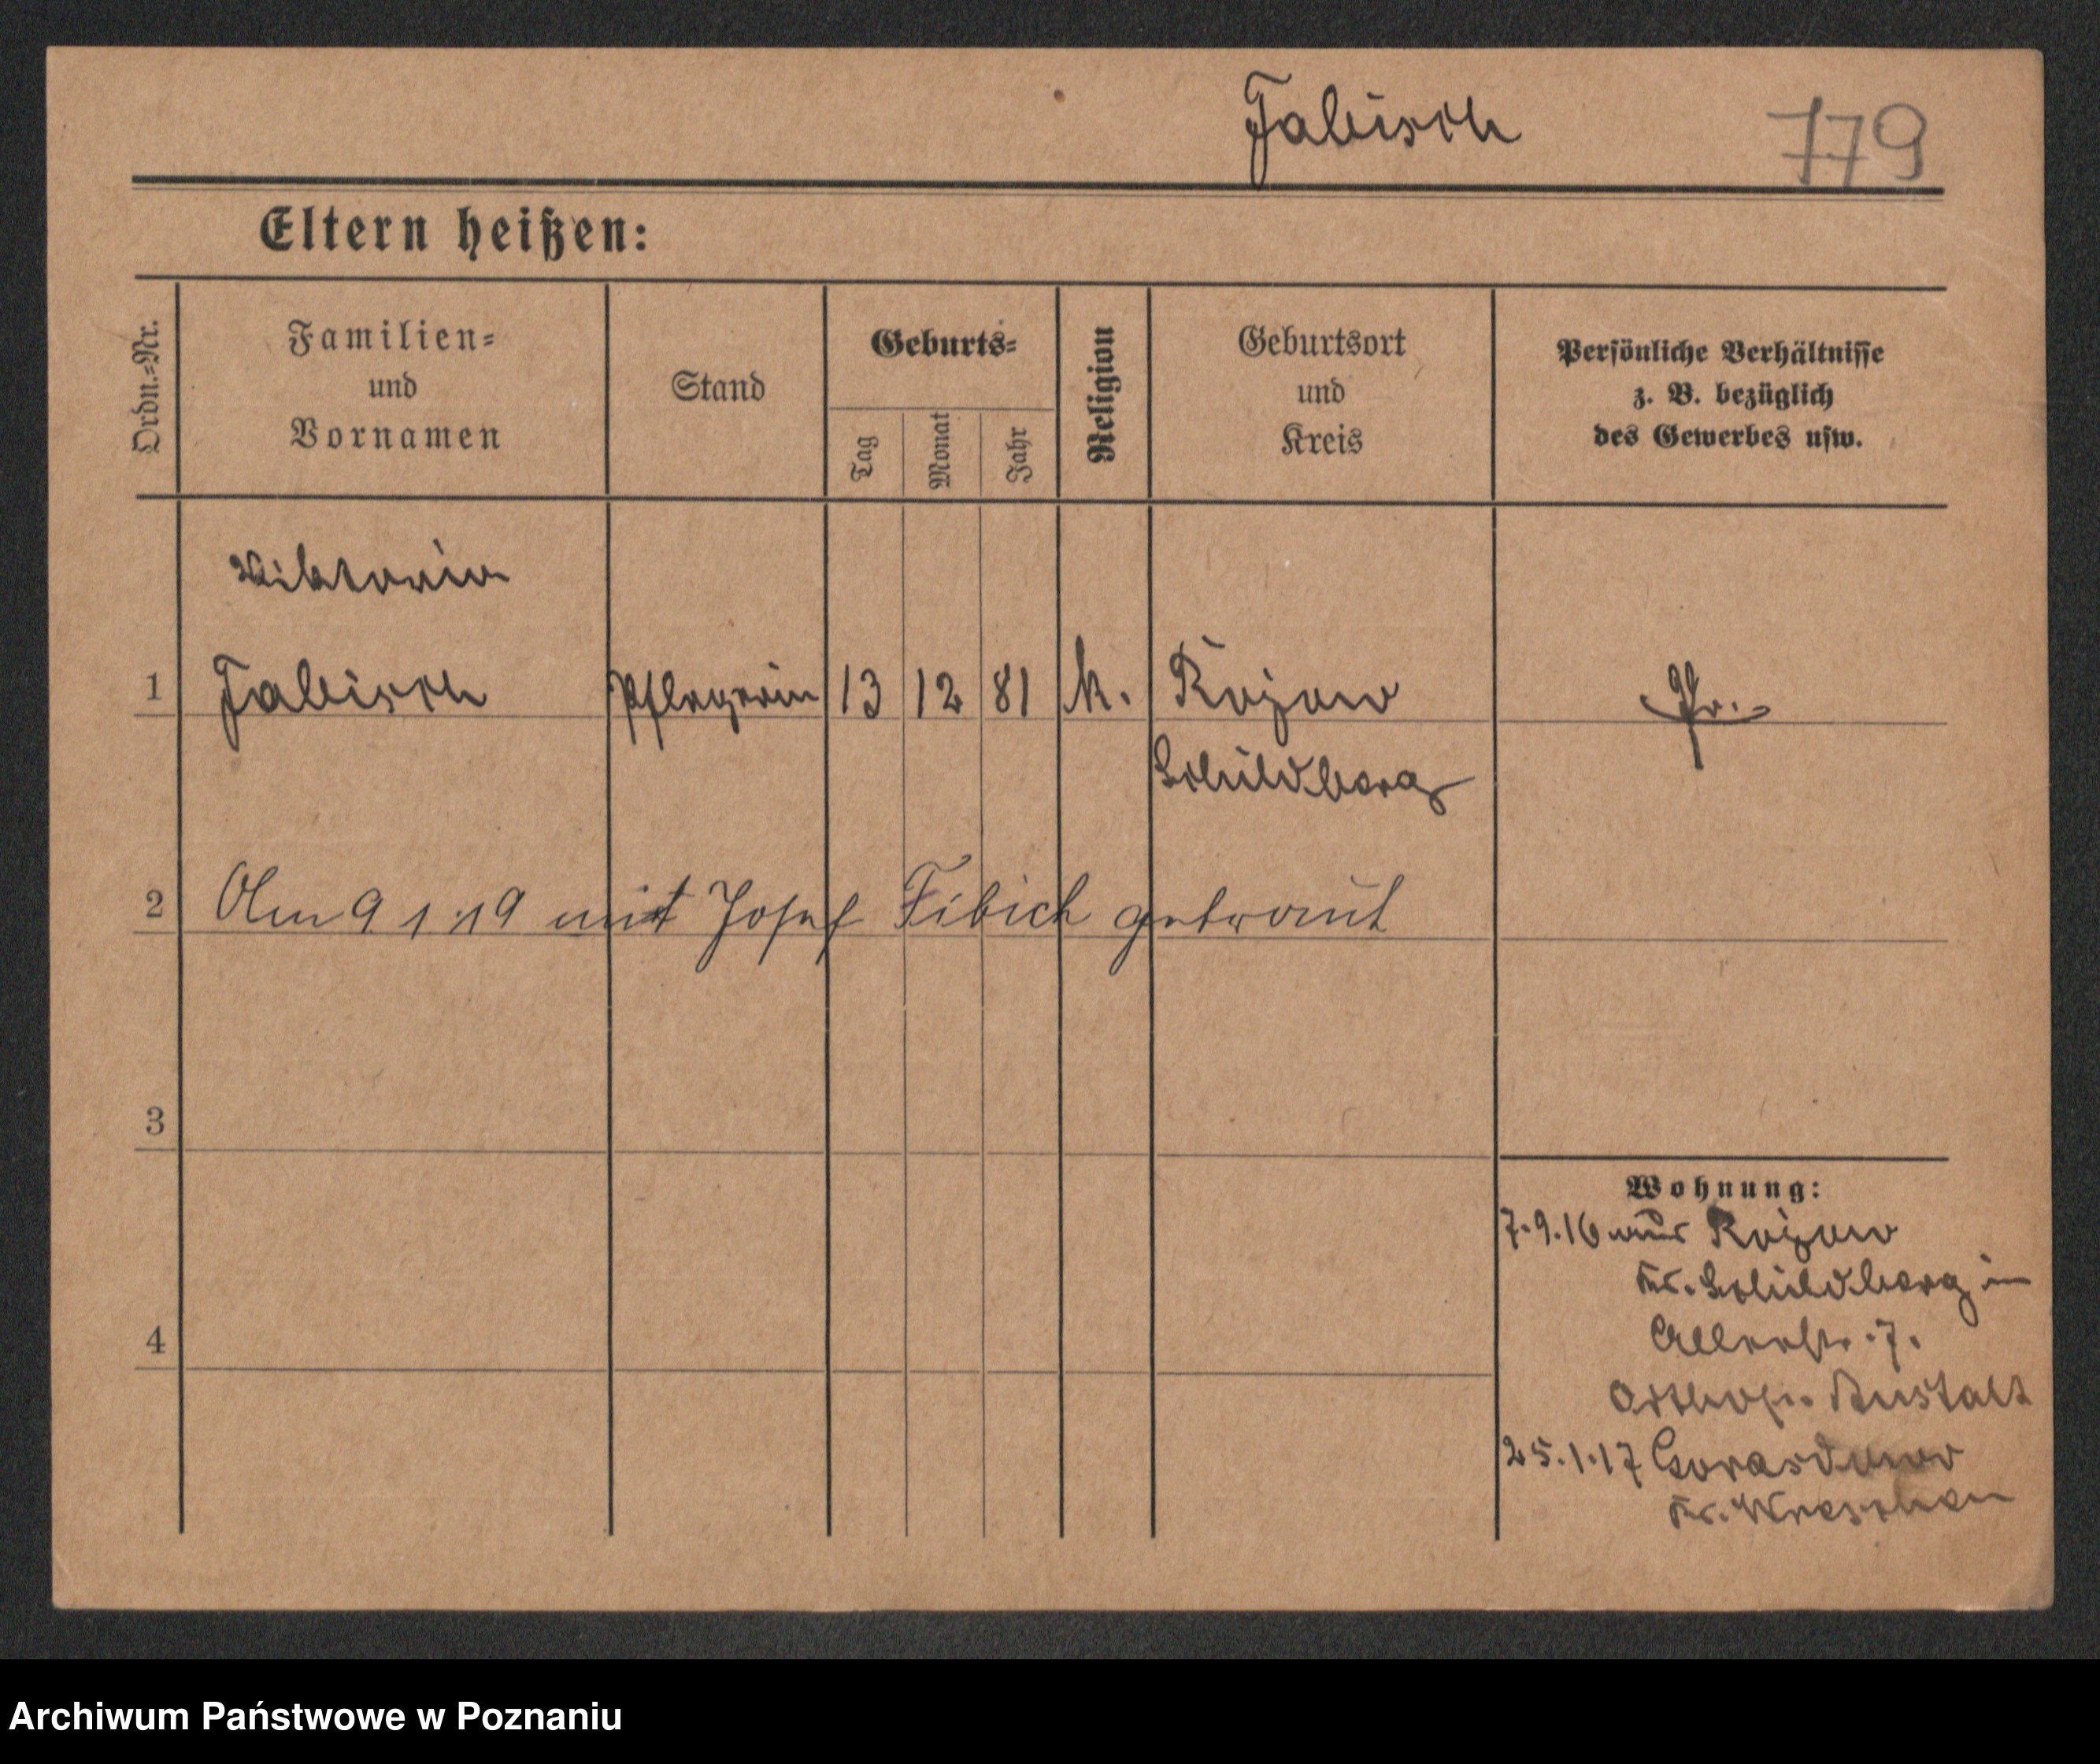 Fabisch 779
Eltern heißen:
Ordn.-Nr. Familien- und Vornamen Stand Geburts- Tag Monat Jahr Religion Geburtsort und Kreis Persönliche Verhältnisse z. B. bezüglich des Gewerbes usw.
Viktoria
1 Fabisch Pflegerin 13 12 81 k. Rojow Pr.
Schildberg
2 Am 9 1 19 mit Josef Fibich getraut
3
Wohnung:
7.9.16 aus Rojow
Kr. Schildberg in
4
7.
Orthop. Anstalt
25.1.17
Kr. Wreschen
Archiwum Państwowe w Poznaniu